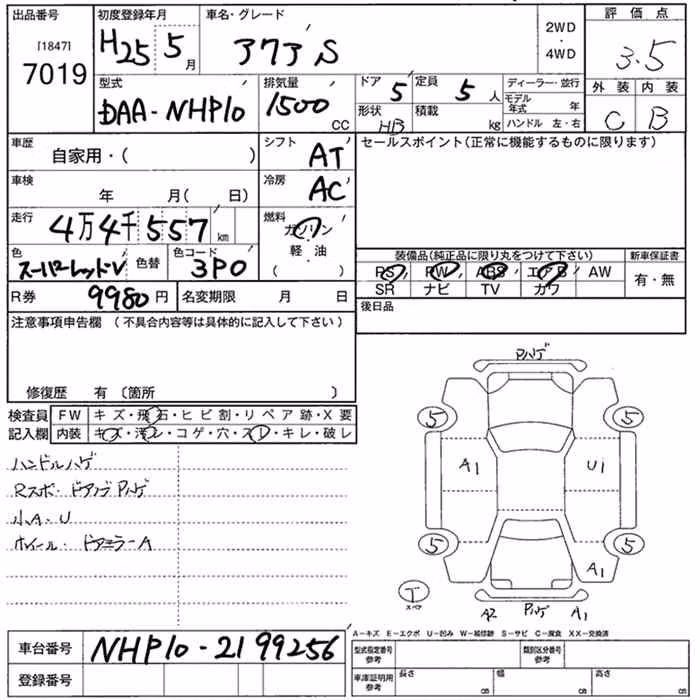 出品番号 初度登録年月 車名・グレード 評価点
[1847]
7019 H25 5月 アクア S 2WD・4WD 3.5
型式 排気量 ドア 5 定員 5人 ディーラー・並行 外装 内装
DAA-NHP10 1500 CC 形状 HB 積載 kg モデル年式 年 C B
ハンドル 左・右
車歴 自家用・( ) シフト AT セールスポイント(正常に機能するものに限ります)
車検 年 月( 日) 冷房 AC
走行 4万4千557km 燃料 ガソリン
軽・油
( )
色 スーパーレッドV 色替 色コード 3P0 装備品(純正品に限り丸をつけて下さい) 新車保証書
PS PW ABS エアB AW 有・無
SR ナビ TV カワ
R券 9980円 名変期限 月 日 後日品
注意事項申告欄 (不具合内容等は具体的に記入して下さい)
修復歴 有 〔箇所 〕
検査員 FW キズ・飛石・ヒビ割・リペア跡・X要
記入欄 内装 キズ・汚レ・コゲ・穴・スレ・キレ・破レ
ハンドルハゲ
Rスポ・ドアノブ Pハゲ
小A・U
ホイール・ドアミラーA
Pハゲ
5 5
A1 U1
5 5
A1
T
スペア
A2 Pハゲ A1
A−キズ E−エクボ U−凹み W−補修跡 S−サビ C−腐食 XX−交換済
車台番号 NHP10-2199256 型式指定番号 参考 類別区分番号 参考
登録番号 車庫証明用 参考 長さ cm 幅 cm 高さ cm